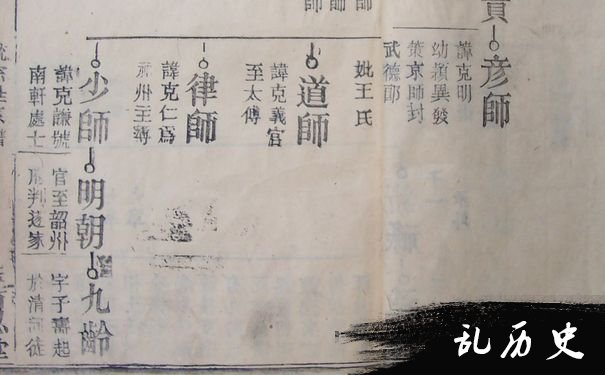 師
師
師
貴
彥師
諱克明
幼穎異發
策京師封
武德郎
妣王氏
道師
諱克義官
至太傅
律師
諱克仁爲
州主簿
少師
諱克謙號
南軒處士
明朝
官至韶州
九齡
字子壽起
乱历史